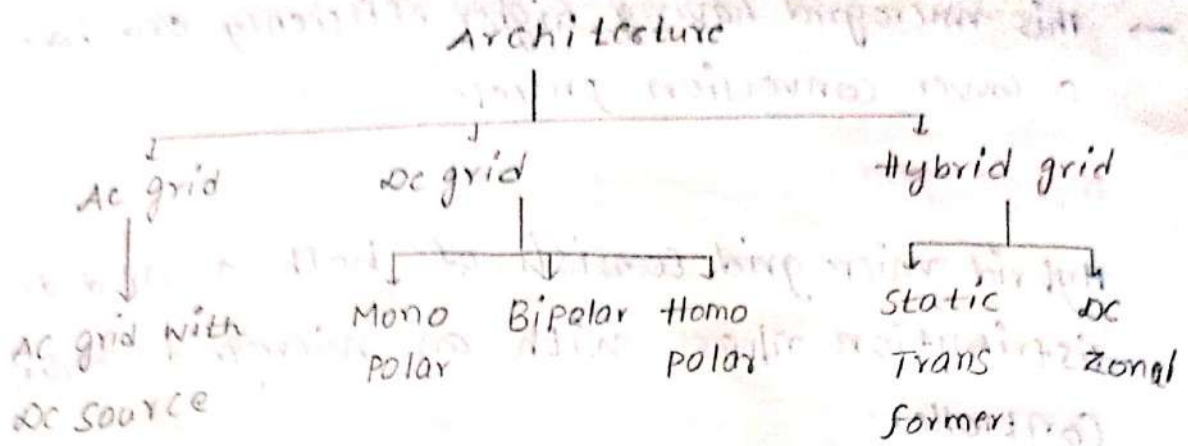 Architecture
Ac grid
Dc grid
Hybrid grid
AC grid with
DC source
Mono
Polar
Bipolar
Homo
polar
Static
Trans
former.
DC
Zonal